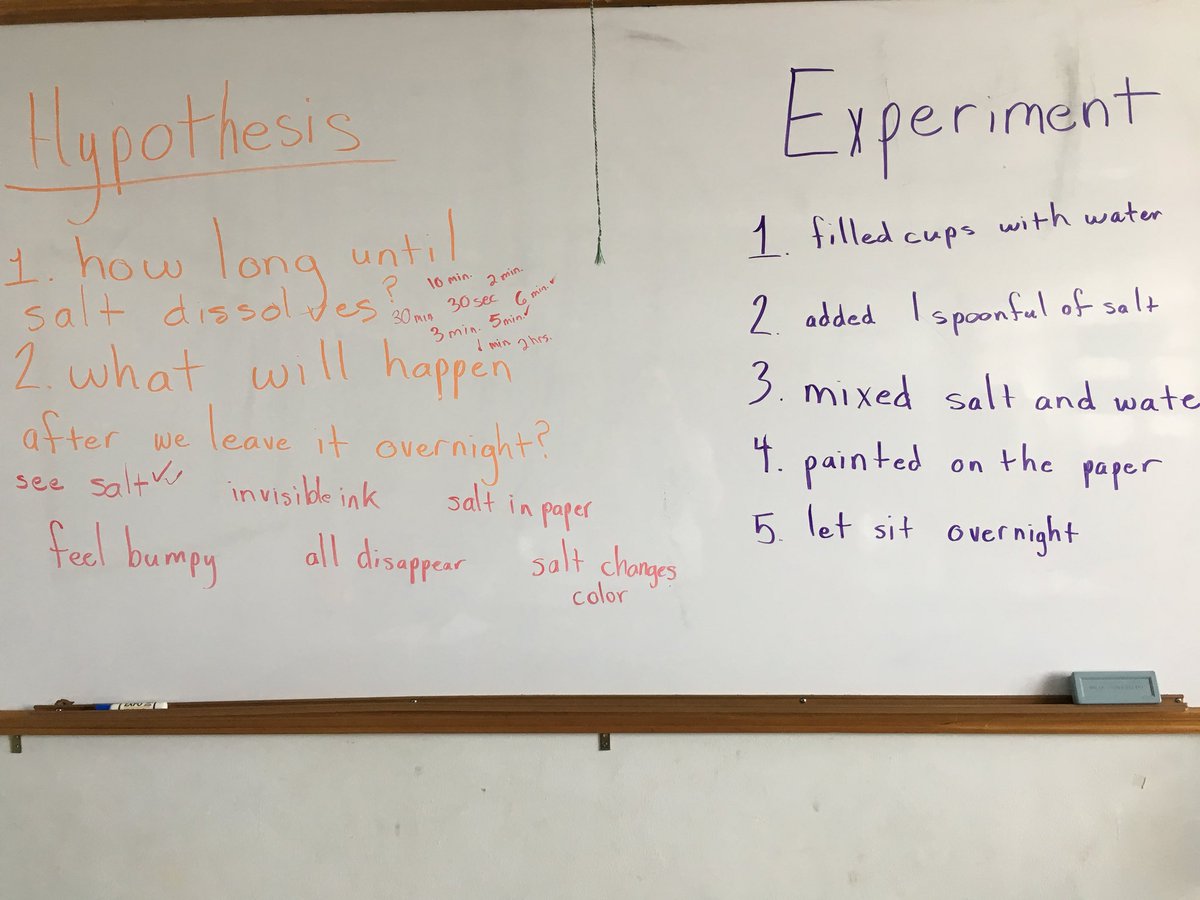 Hypothesis
1. how long until
salt dissolves?
10 min. 2 min.
30 min 30 sec 6 min. ✓
3 min. 5 min ✓
1 min 2 hrs.
2. what will happen
after we leave it overnight?
see salt ✓✓ invisible ink salt in paper
feel bumpy all disappear salt changes
color
Experiment
1. filled cups with water
2. added 1 spoonful of salt
3. mixed salt and wate
4. painted on the paper
5. let sit overnight
EXPO